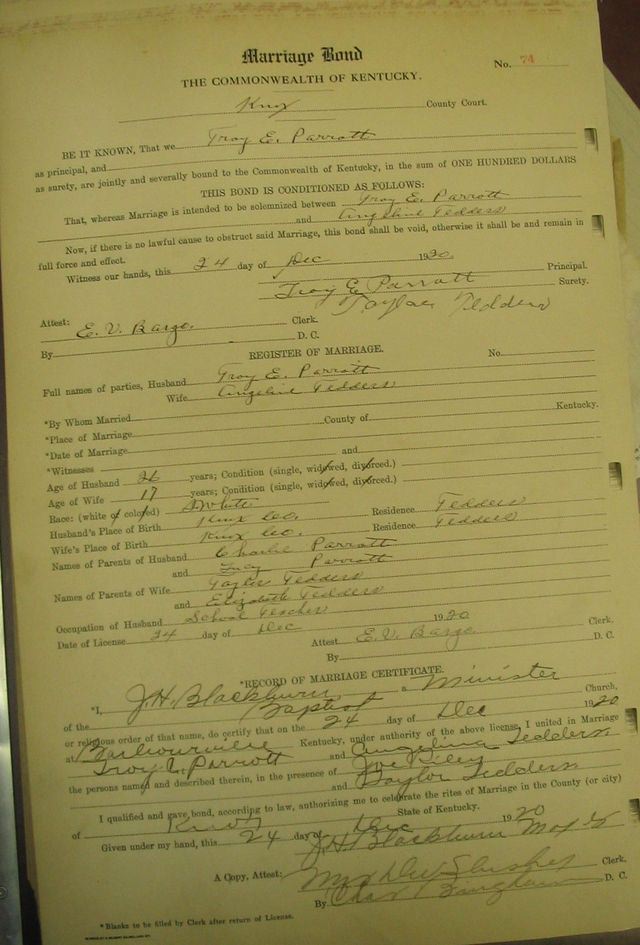 Marriage Bond
No. 74
THE COMMONWEALTH OF KENTUCKY.
Knox County Court.
BE IT KNOWN, That we Troy E. Parrott
as principal, and
as surety, are jointly and severally bound to the Commonwealth of Kentucky, in the sum of ONE HUNDRED DOLLARS
THIS BOND IS CONDITIONED AS FOLLOWS:
That, whereas Marriage is intended to be solemnized between Troy E. Parrott
and Angeline Tedders
Now, if there is no lawful cause to obstruct said Marriage, this bond shall be void, otherwise it shall be and remain in
full force and effect.
Witness our hands, this 24 day of Dec 1920.
Troy E. Parrott Principal.
Taylor Tedders Surety.
Attest: E. V. Bargo. Clerk.
By D. C.
REGISTER OF MARRIAGE.
No.
Full names of parties, Husband Troy E. Parrott
Wife Angeline Tedders
*By Whom Married
*Place of Marriage County of Kentucky.
*Date of Marriage
*Witnesses and
Age of Husband 26 years; Condition (single, widowed, divorced.)
Age of Wife 17 years; Condition (single, widowed, divorced.)
Race: (white or colored) White
Husband's Place of Birth Knox Co. Residence Tedders
Wife's Place of Birth Knox Co. Residence Tedders
Names of Parents of Husband Charlie Parrott
and Lucy Parrott
Names of Parents of Wife Taylor Tedders
and Elizabeth Tedders
Occupation of Husband School Teacher
Date of License 24 day of Dec 1920
Attest E. V. Bargo Clerk.
By D. C.
*RECORD OF MARRIAGE CERTIFICATE.
*I, J. H. Blackburn a Minister
of the Baptist Church,
or religious order of that name, do certify that on the 24 day of Dec 1920
at Barbourville Kentucky, under authority of the above license, I united in Marriage
Troy E. Parrott and Angelina Tedders
the persons named and described therein, in the presence of Joe Riley
and Taylor Tedders
I qualified and gave bond, according to law, authorizing me to celebrate the rites of Marriage in the County (or city)
of Knox State of Kentucky.
Given under my hand, this 24 day of Dec 1920
J. H. Blackburn
A Copy, Attest: Clerk.
By D. C.
*Blanks to be filled by Clerk after return of License.